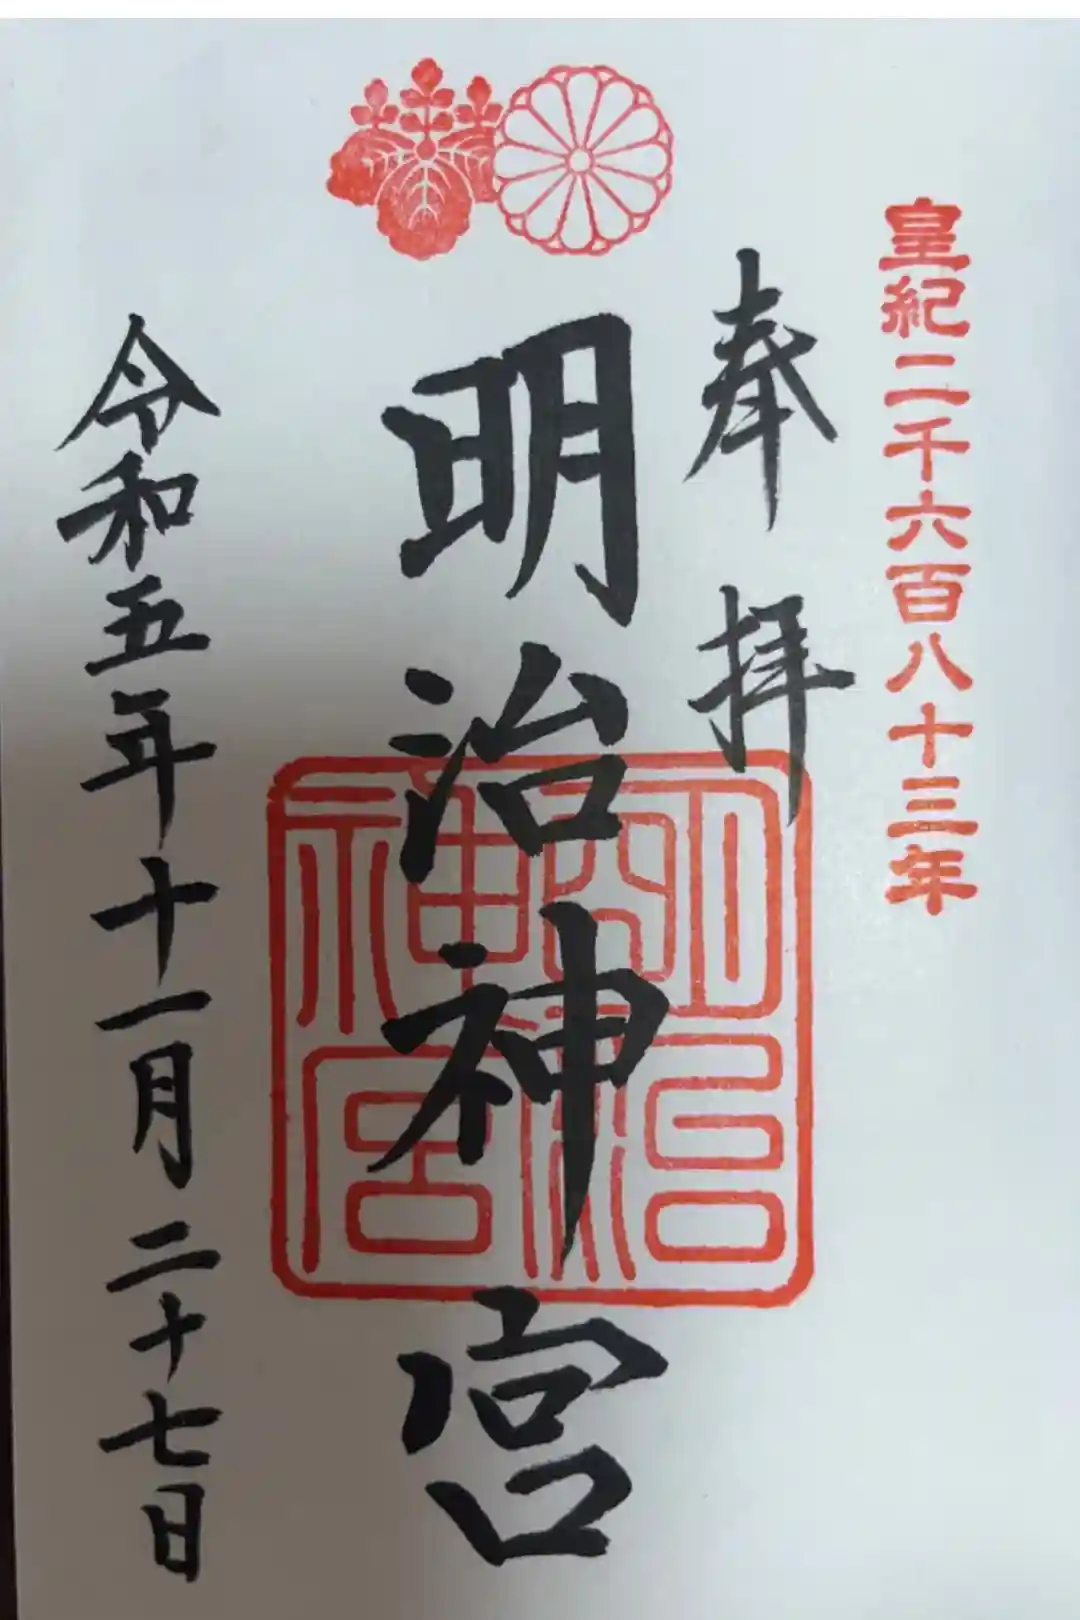 皇紀二千六百八十三年
奉拝
明治神宮
明治神宮
令和五年十一月二十七日